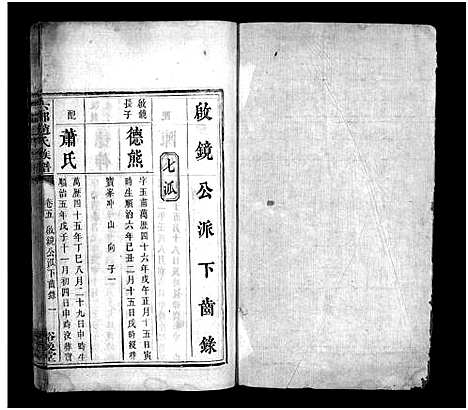 啟鏡公派下齒錄
七派
啟鏡長子
德熊
字玉甫萬歷四十六年戊午正月十五日寅
時生順治六年己丑二月十五日戌時沒葬
寶峯冲山向子一
配
蕭氏
萬歷四十五年丁巳八月二十九日申時生
順治五年戊子十一月初四日申時沒葬
趙氏族譜
卷五
啟鏡公派下齒錄
一